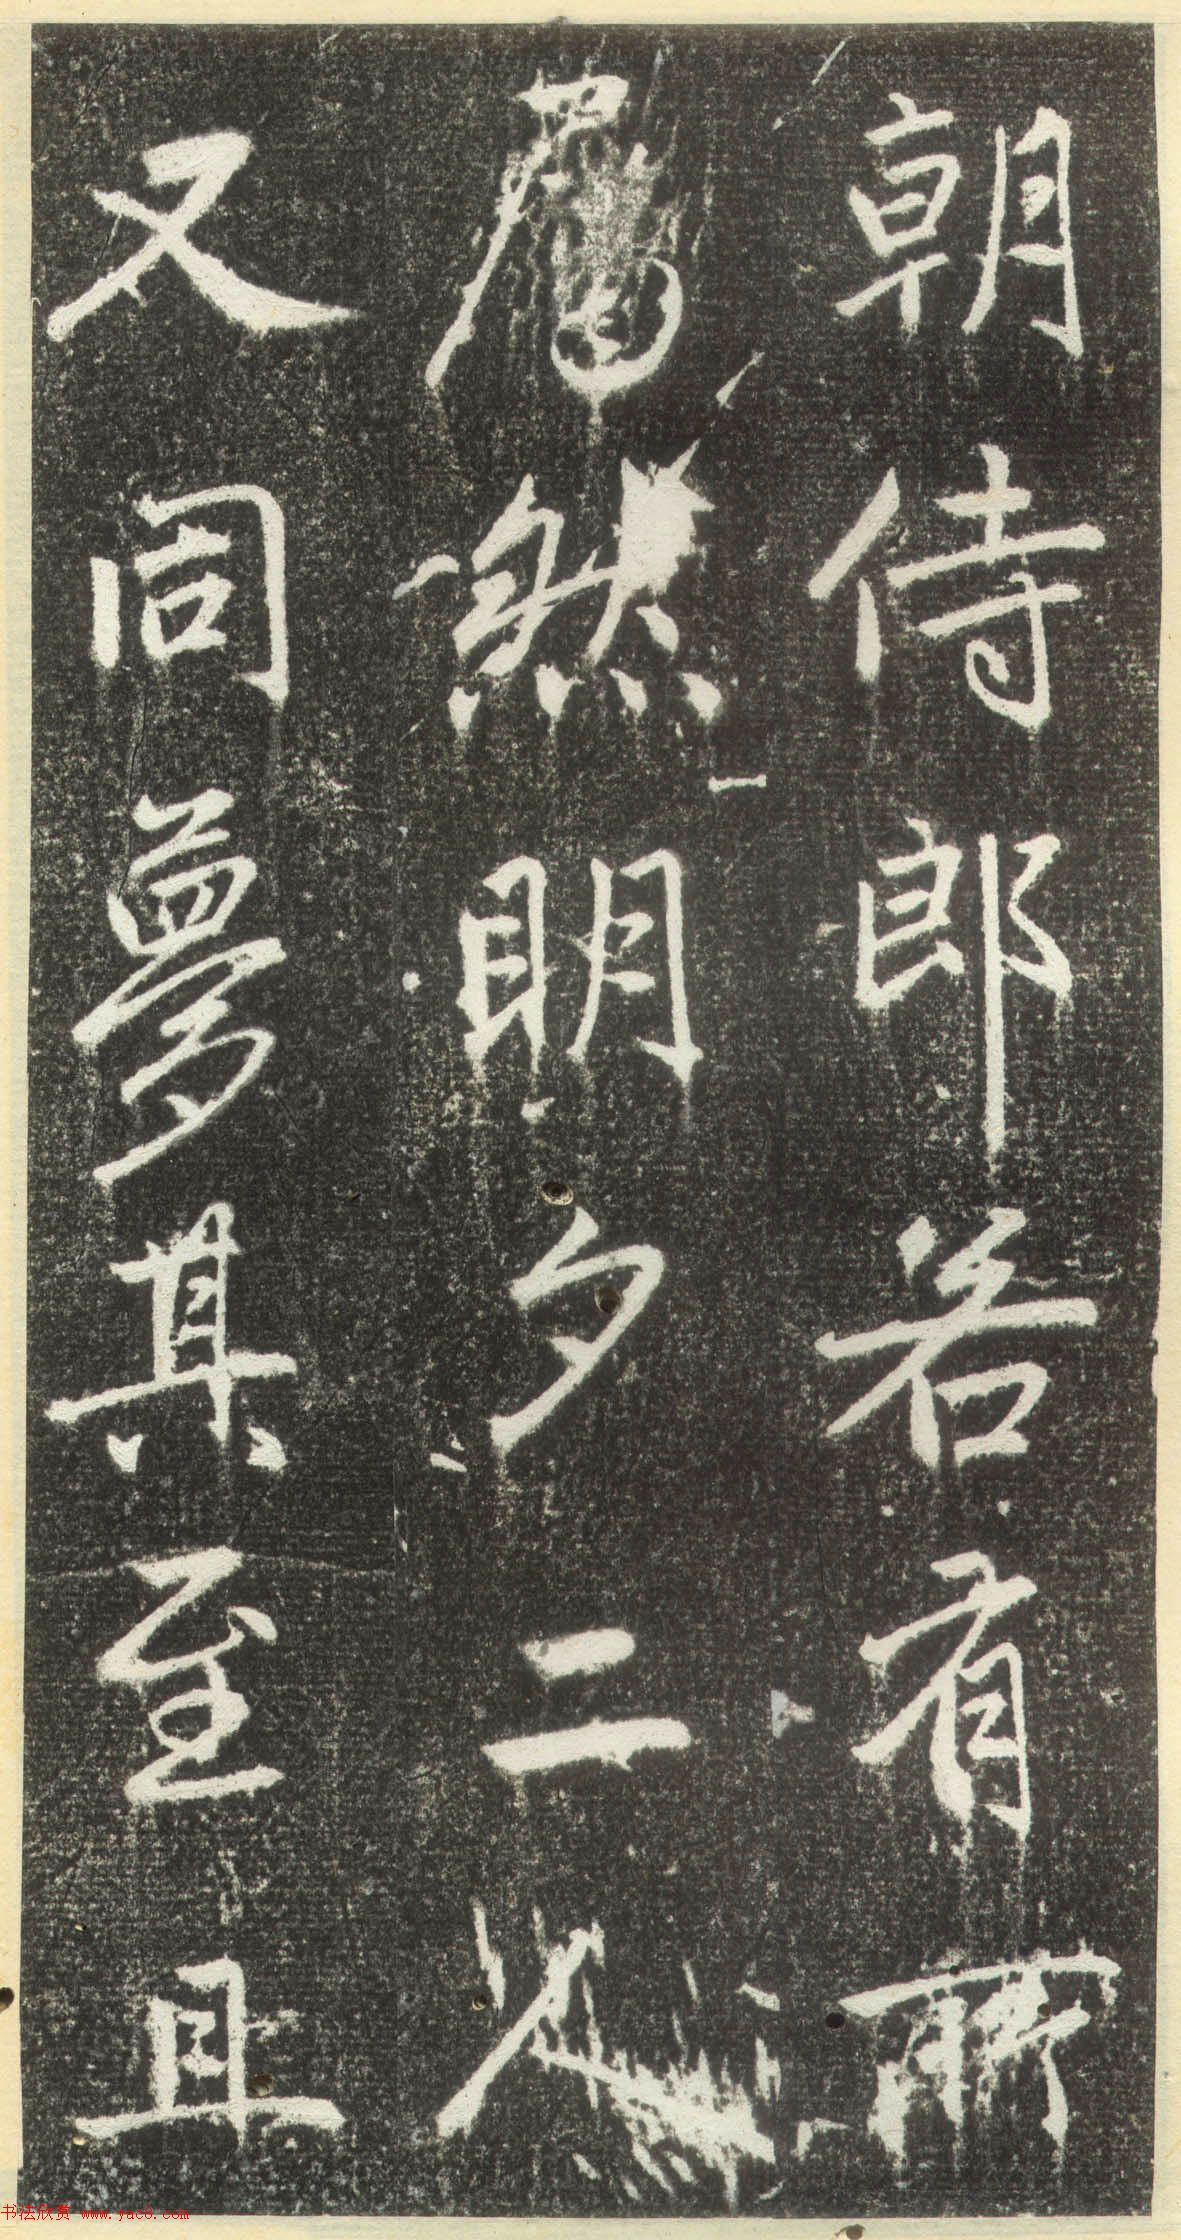 朝侍郎若有所
屬然明夕二人
又同夢其至且
书法欣赏 www.yac8.com